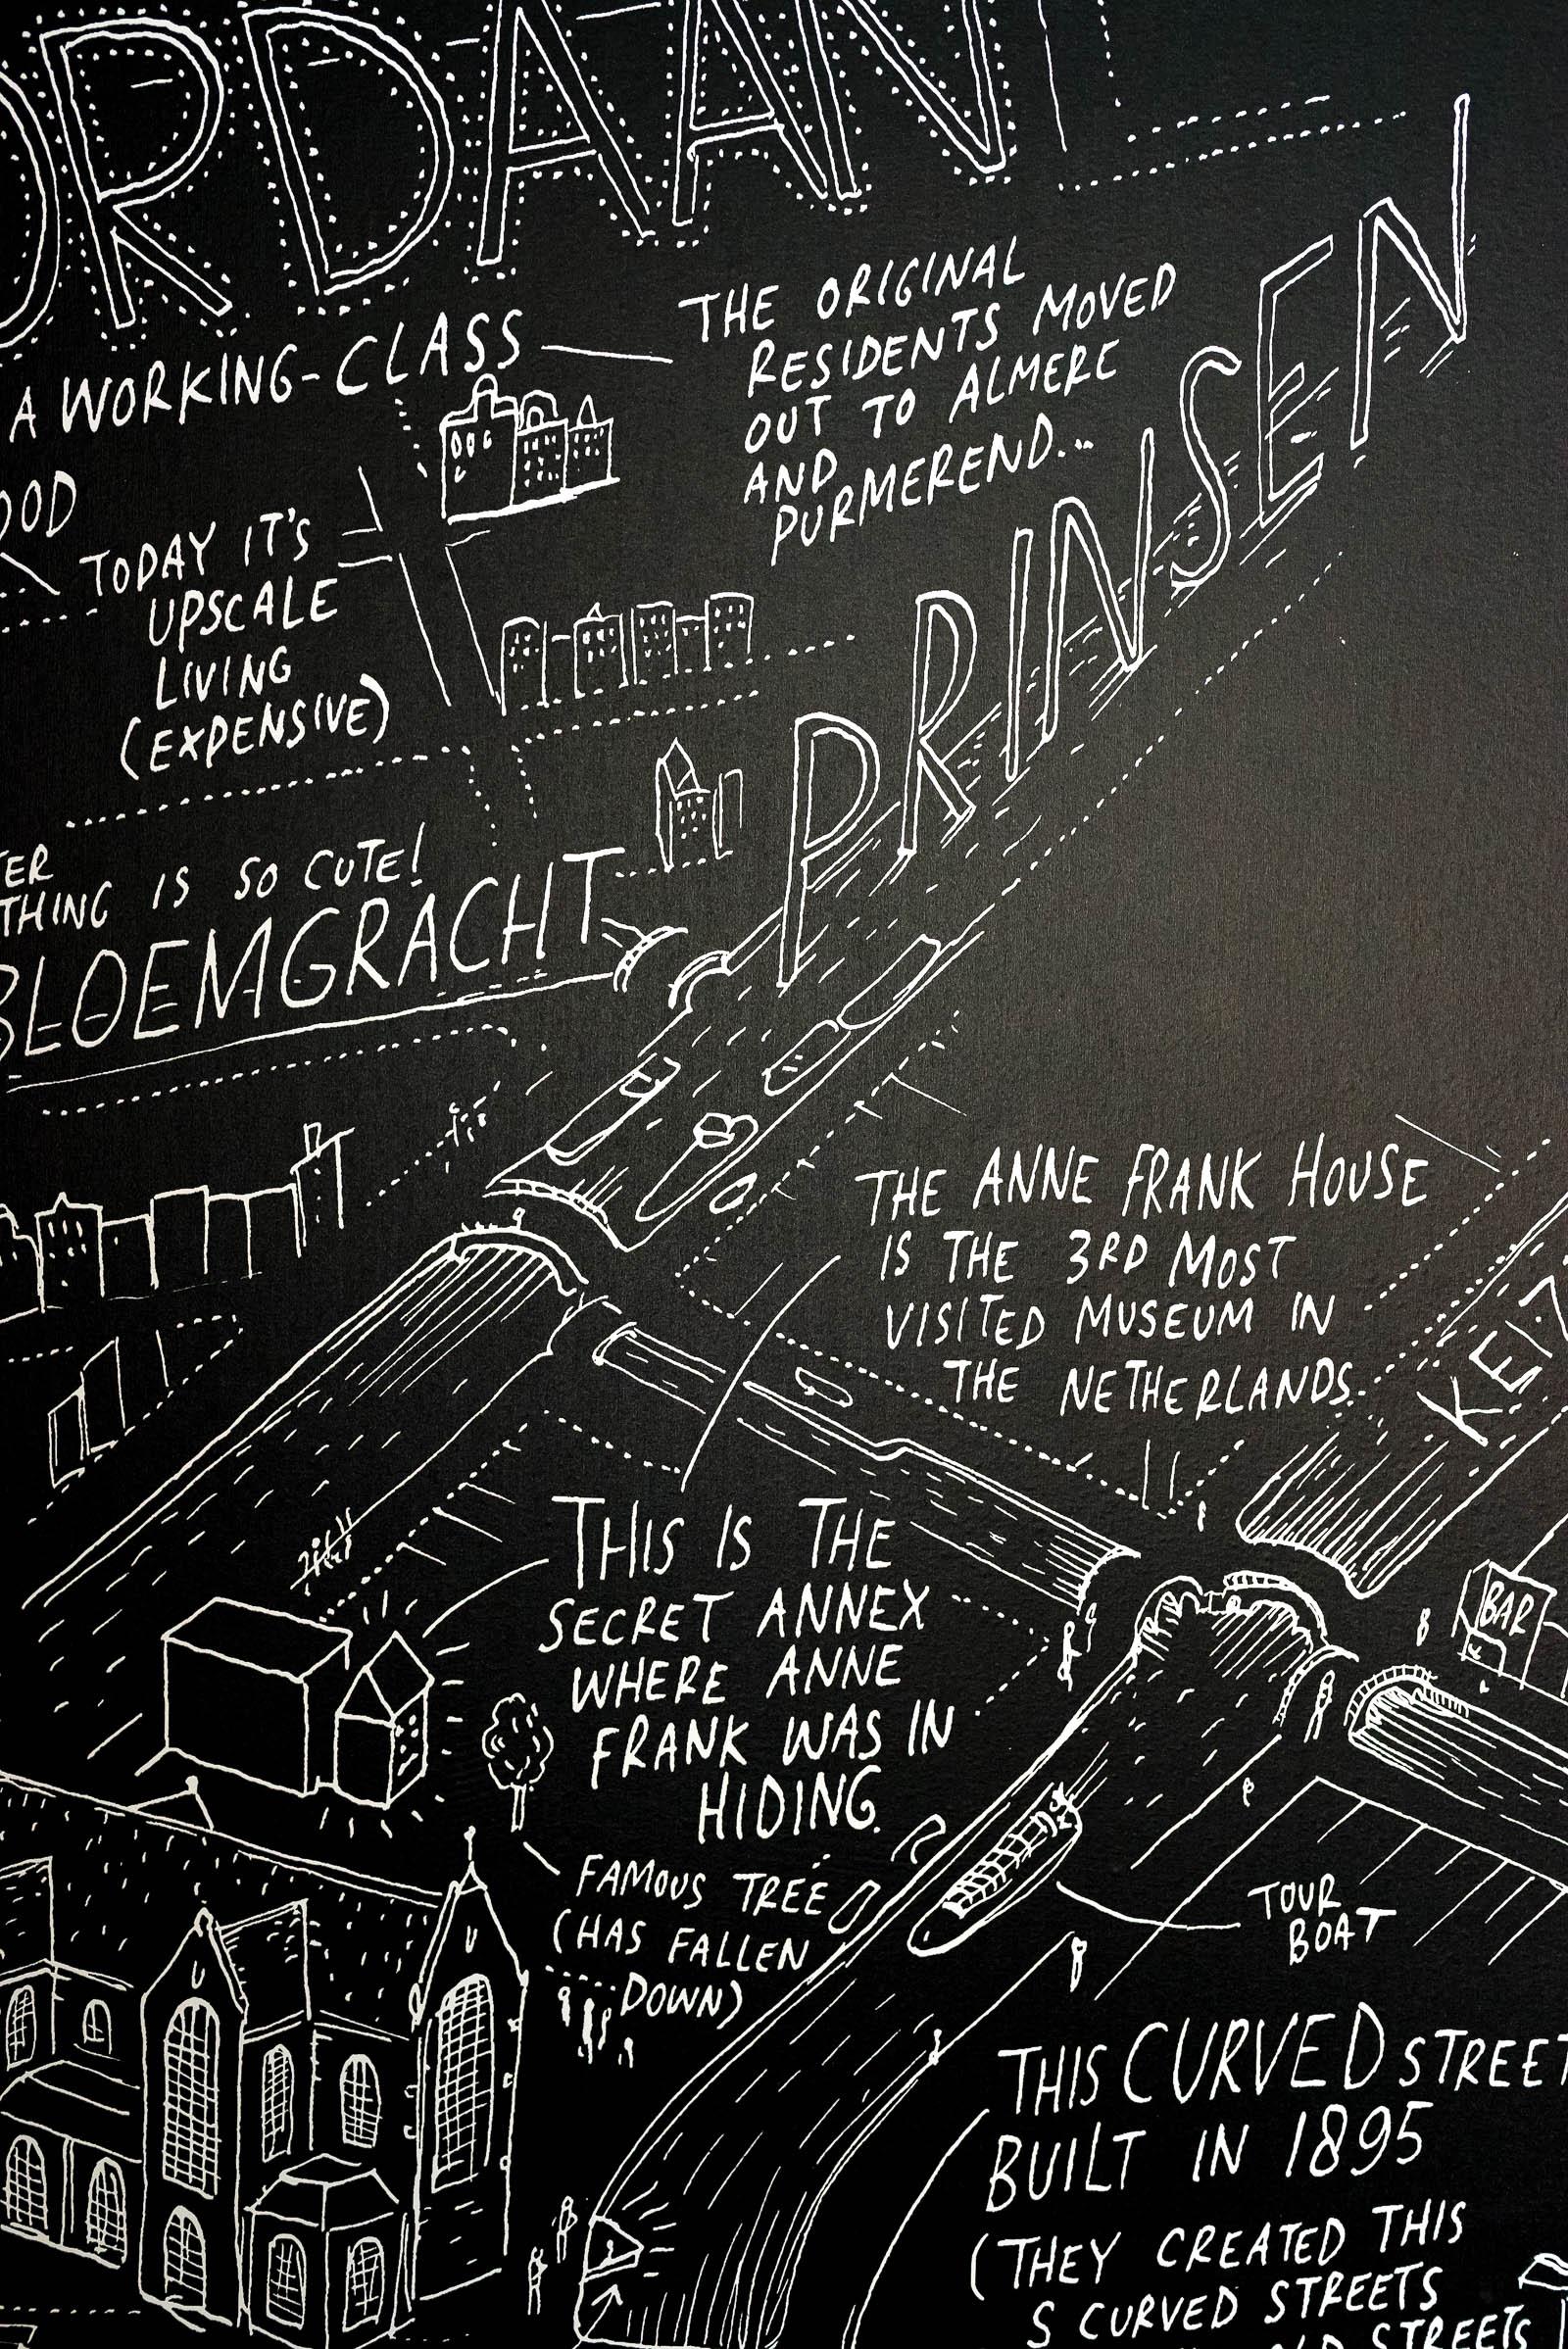 ORDAAN
A WORKING-CLASS
OOD
THE ORIGINAL
RESIDENTS MOVED
OUT TO ALMERE
AND
PURMEREND...
TODAY IT'S
UPSCALE
LIVING
(EXPENSIVE)
PRINSEN
TER
THING IS SO CUTE!
BLOEMGRACHT
THE ANNE FRANK HOUSE
IS THE 3RD MOST
VISITED MUSEUM IN
THE NETHERLANDS.
KEIZ
THIS IS THE
SECRET ANNEX
WHERE ANNE
FRANK WAS IN
HIDING.
BAR
FAMOUS TREE
(HAS FALLEN
DOWN)
TOUR
BOAT
THIS CURVED STREET
BUILT IN 1895
(THEY CREATED THIS
S CURVED STREETS
OLD STREETS